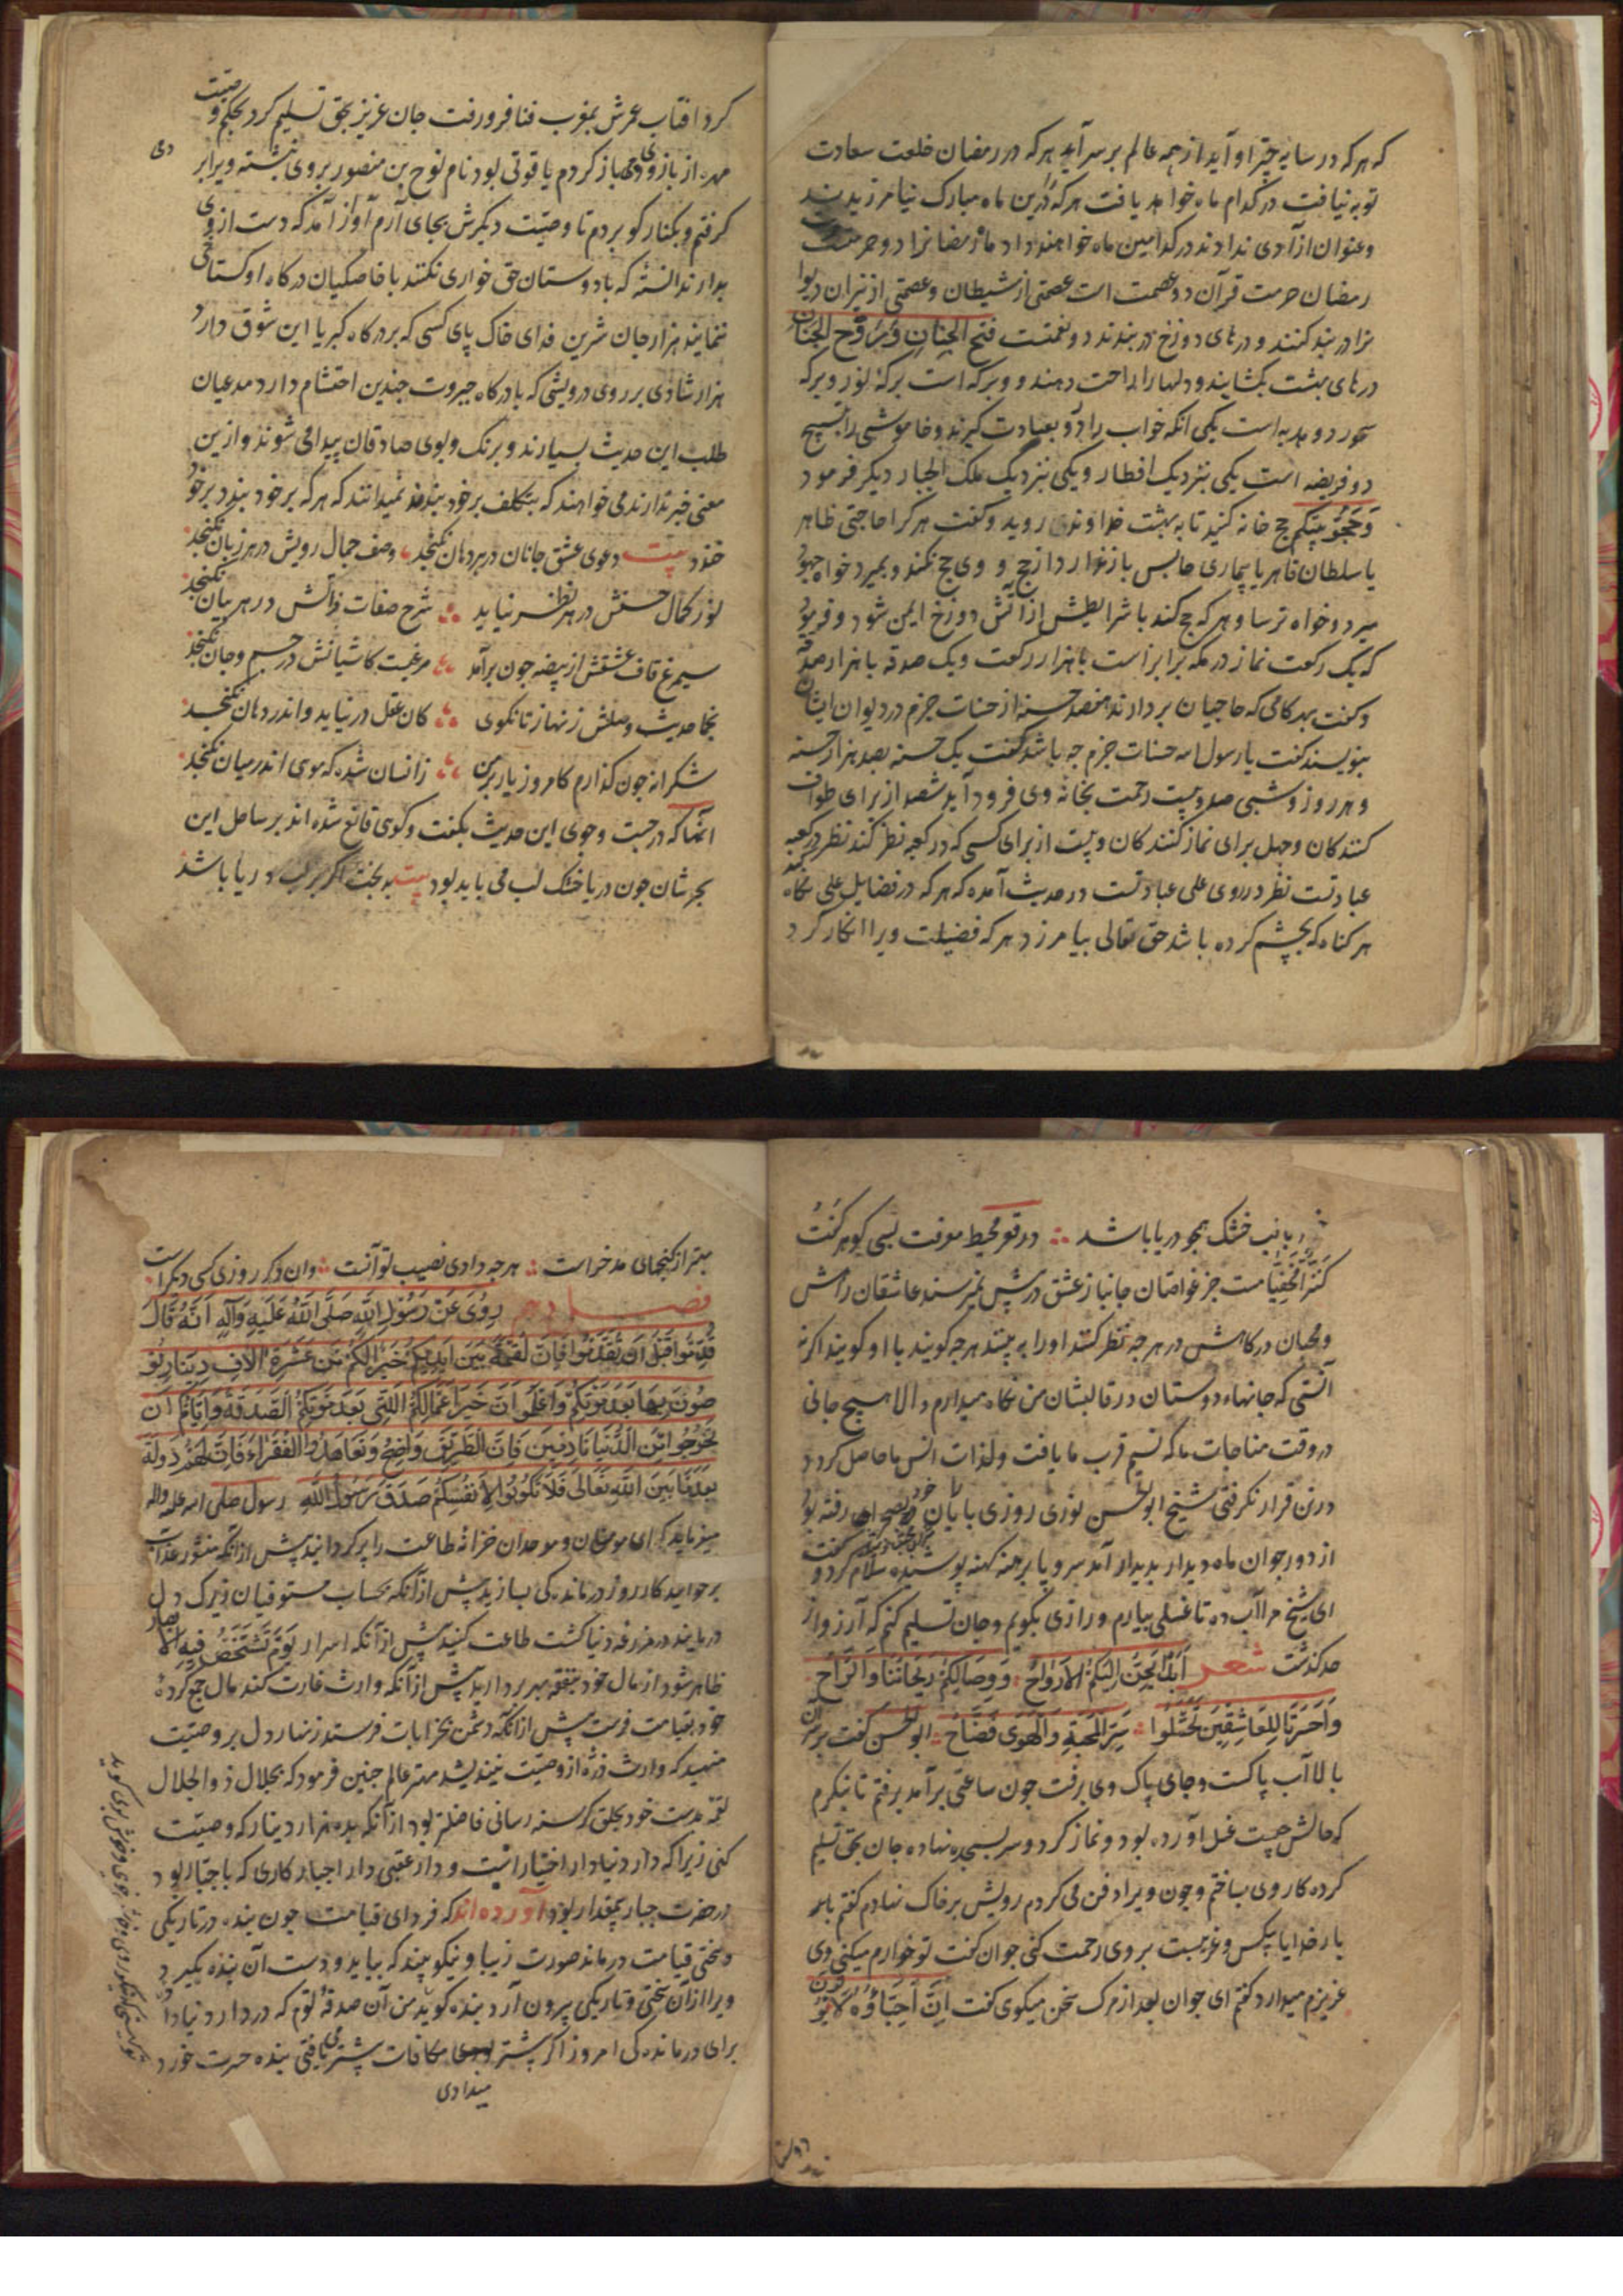 که هر که در سایه چتر او آید از همه عالم بر سر آید هر که در رمضان خلعت سعادت
توبه نیافت در کدام ماه خواهد یافت هر که درین ماه مبارک نیامرزیدند
و عنوان آزادی ندادند در کدامین ماه خواهند داد ماه رمضانرا دو حرمتست
رمضان حرمت قرآن دو عصمت است عصمتی از شیطان و عصمتی از نیران دیوا
نرا در بند کنند و درهای دوزخ در بندند دو نعمتست فتح الجنان و روح الجنان
درهای بهشت بکشایند و دلها را راحت دهند دو برکه است برکه نور و برکه
سحور دو هدیه است یکی انکه خواب را بعبادت گیرند و خاموشی را بتسبیح
دو فریضه است یکی بنزدیک افطار و یکی بنزدیک ملک الجبار دیگر فرمود
و حجوا بیتکم حج خانه کنید تا به بهشت خداوند روید و گفت هر کرا حاجتی ظاهر
یا سلطان قاهر یا بیماری حابس باز ندارد از حج و وی حج نکند و بمیرد خواه جهود
میرد و خواه ترسا و هر که حج کند با شرایطش از آتش دوزخ ایمن شود و فرمود
که یک رکعت نماز در مکه برابر است با هزار رکعت و یک صدقه با هزار صدقه
و گفت بهر گامی که حاجیان بردارند هفصد حسنه از حسنات حرم در دیوان ایشان
بنویسند گفت یا رسول الله حسنات حرم چه باشد گفت یک حسنه بصد هزار حسنه
و هر روز و شبی صد و بیست رحمت بخانه وی فرود آید شصد از برای طواف
کنندگان و چهل برای نماز کنندگان و بیست از برای کسی که در کعبه نظر کند نظر در کعبه
عبادتست نظر در روی علی عبادتست در حدیث آمده که هر که در فضایل علی نگاه کند
هر گناه که بچشم کرده باشد حق تعالی بیامرزد هر که فضیلت ویرا انکار کرد
کرد افتاب عمرش بمغرب فنا فرو رفت جان عزیز بحق تسلیم کرد بحکم وصیت
مهره از بازوی وی باز کردم یاقوتی بود نام نوح بن منصور بروی نبشته ویرا بر
گرفتم و بکنار گور بردم تا وصیت دیگرش بجای آرم آواز آمد که دست از وی
بدار ندانسته که با دوستان حق خواری نکنند با خاصگیان درگاه او گستاخی
ننمایند هزار جان شیرین فدای خاک پای کسی که بر درگاه کبریا این شوق دارد
هزار شادی بر روی درویشی که با درگاه جبروت چندین احتشام دارد مدعیان
طلب این حدیث بسیارند و برنگ و بوی صادقان پیدا می شوند و ازین
معنی خبر ندارند می خواهند که بتکلف بر خود بندند نمیدانند که هر که بر خود بندد بر خود
خندد بیت دعوی عشق جانان در هر دهان نگنجد وصف جمال رویش در هر زبان نگنجد
نور کمال حسنش در هر نظر نیاید شرح صفات ذاتش در هر بیان نگنجد
سیمرغ قاف عشقش از بیضه چون برآمد مرغیست کاشیانش در جسم و جان نگنجد
بخا حدیث وصلش زنهار تا نگوی کان عقل در نیاید و اندر دهان نگنجد
شکرانه چون گذارم کامروز یار بر من زانسان شده که موی اندر میان نگنجد
آنها که در جست و جوی این حدیث بگفت و گوی قانع شده اند بر ساحل این
بحر شان چون دریا خشک لب می باید بود بیت به بخت اگر بر لب دریا باشد
دریا لب خشک همچو دریا باشد در قعر محیط معرفت بسی گوهر کنت
کنزا مخفیاست جز غواصان جانباز عشق درش نمیرسند عاشقان راهش
و محبان درگاهش در هر چه نظر کنند او را بینند هر چه گویند با او گویند اگر نه
آنستی که جانهاء دوستان در قالبشان من نگاه میدارم والا هیچ جانی
در وقت مناجات ما که نسیم قرب ما یافت و لذات انس ما حاصل کرد
درتن قرار نگرفتی شیخ ابوالحسن نوری روزی با یاران خود بصحرای رفته بود
از دور جوان ماه دیدار پدیدار آمد سر و پا برهنه کهنه پوشیده سلام کرد و گفت
ای شیخ مرا آب ده تا غسلی بیارم و رازی بگویم و جان تسلیم کنم که آرزو از
حد گذشت شعر ابدا تحن الیکم الارواح و وصالکم ریحاننا والراح
واحسرتا للعاشقین تحملوا سر المحبة والهوی فضاح ابوالحسن گفت برین
بالا آب پاکست و جای پاک وی برفت چون ساعتی برآمد برفتم تا بنگرم
که حالش چیست غسل آورده بود و نماز کرد و سر بسجده نهاده جان بحق تسلیم
کرده کار وی بساختم و چون ویرا دفن می کردم رویش بر خاک نهادم گفتم بار
یا رخدایا بیکس و غریبست بر وی رحمت کنی جوان گفت تو خوارم میکنی وی
عزیزم میدارد گفتم ای جوان بعد از مرگ سخن میگوی گفت ان احباؤه لا یموتون
بهتر از گنجهای مدخراست هر چه دادی نصیب تو آنست وان دگر روزی کسی دگر است
فصل دهم روی عن رسول الله صلی الله علیه وآله انه قال
قدموا قبل ان تقدموا فان لقمة بین ایدیکم خیر لکم من عشرة الاف دینار تو
صون بها بعد موتکم واعلموا ان خیر اعمالکم اللتی بعد موتکم الصدقة وایاکم ان
تخرجوا من الدنیا نادمین فان الطریق واضح وتعاهدوا الفقراء فان لهم دولة
بعدها بین الله تعالی فلا تکونوا لانفسکم صدق رسول الله رسول صلی الله علیه واله
میفرماید که ای مومنان و موحدان خزانه طاعت را پر گردانید پیش از آنکه منشور عذاب
برخوانید کار روز درماندگی بسازید پیش از آنکه بحساب مستوفیان زیرک دل
درمانید در مزرعه دنیا کشت طاعت کنید پیش از آنکه اسرار یوم تشخص فیه الابصار
ظاهر شود از مال خود بنفقه بهره بردارید پیش از آنکه وارث غارت کند مال جمع کرده
خود بقیامت فرست پیش از آنکه دشمن بخرابات فرستد زنهار دل بر وصیت
منهید که وارث ذره از وصیت نیندیشد مهتر عالم چنین فرمود که بجلال ذوالجلال
لقمه بدست خود بخلق گرسنه رسانی فاضلتر بود از آنکه بده هزار دینار که وصیت
کنی زیرا که دار دنیا دار اختیار است و دار عقبی دار اجبار کاری که با جبار بود
در حضرت جبار بیمقدار بود آورده اند که فردای قیامت چون بنده در تاریکی
و سختی قیامت درماند صورت زیبا و نیکو بیند که بیاید و دست آن بنده بگیرد
و برا از آن سختی و تاریکی بیرون آرد بنده گوید من آن صدقه توم که در دار دنیا دا
برای درماندگی امروز اگر بیشتر مکافات بیشتر یافتی بنده حسرت خورد
میدادی